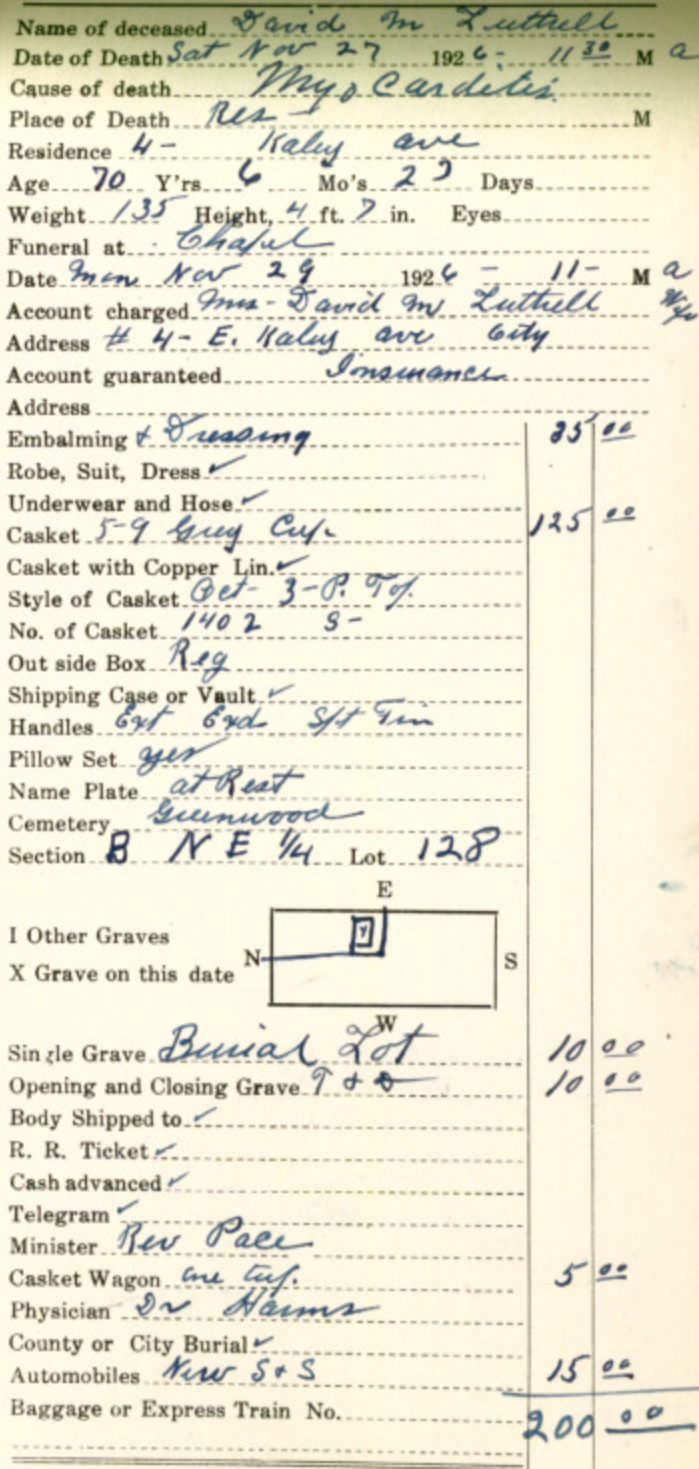 Name of deceased David M Luttrell
Date of Death Sat Nov 27 1926 - 11 30 M a
Cause of death Myo Carditis
Place of Death Res - M
Residence 4 - Kaley ave
Age 70 Y'rs 6 Mo's 27 Days
Weight 135 Height, 4 ft. 7 in. Eyes
Funeral at - Chapel
Date Mon Nov 29 1926 - 11 - M a
Account charged Mrs - David M Luttrell
Address # 4 - E. Kaley ave City
Account guaranteed Insurance
Address
Embalming & Dressing 35 00
Robe, Suit, Dress ✓
Underwear and Hose ✓
Casket 5-9 Grey Cup. 125 00
Casket with Copper Lin. ✓
Style of Casket Oct - 3 - P. Top.
No. of Casket 1402 S -
Out side Box Reg
Shipping Case or Vault ✓
Handles Ext Exd Tin
Pillow Set yes
Name Plate at Rest
Cemetery Greenwood
Section B N E 1/4 Lot 128
E
I Other Graves
N S
X Grave on this date
W
Single Grave Burial Lot 10 00
Opening and Closing Grave T & 10 00
Body Shipped to ✓
R. R. Ticket ✓
Cash advanced ✓
Telegram ✓
Minister Rev Pace
Casket Wagon one 5 00
Physician Dr Harms
County or City Burial ✓
Automobiles New S & S 15 00
Baggage or Express Train No. 200 00